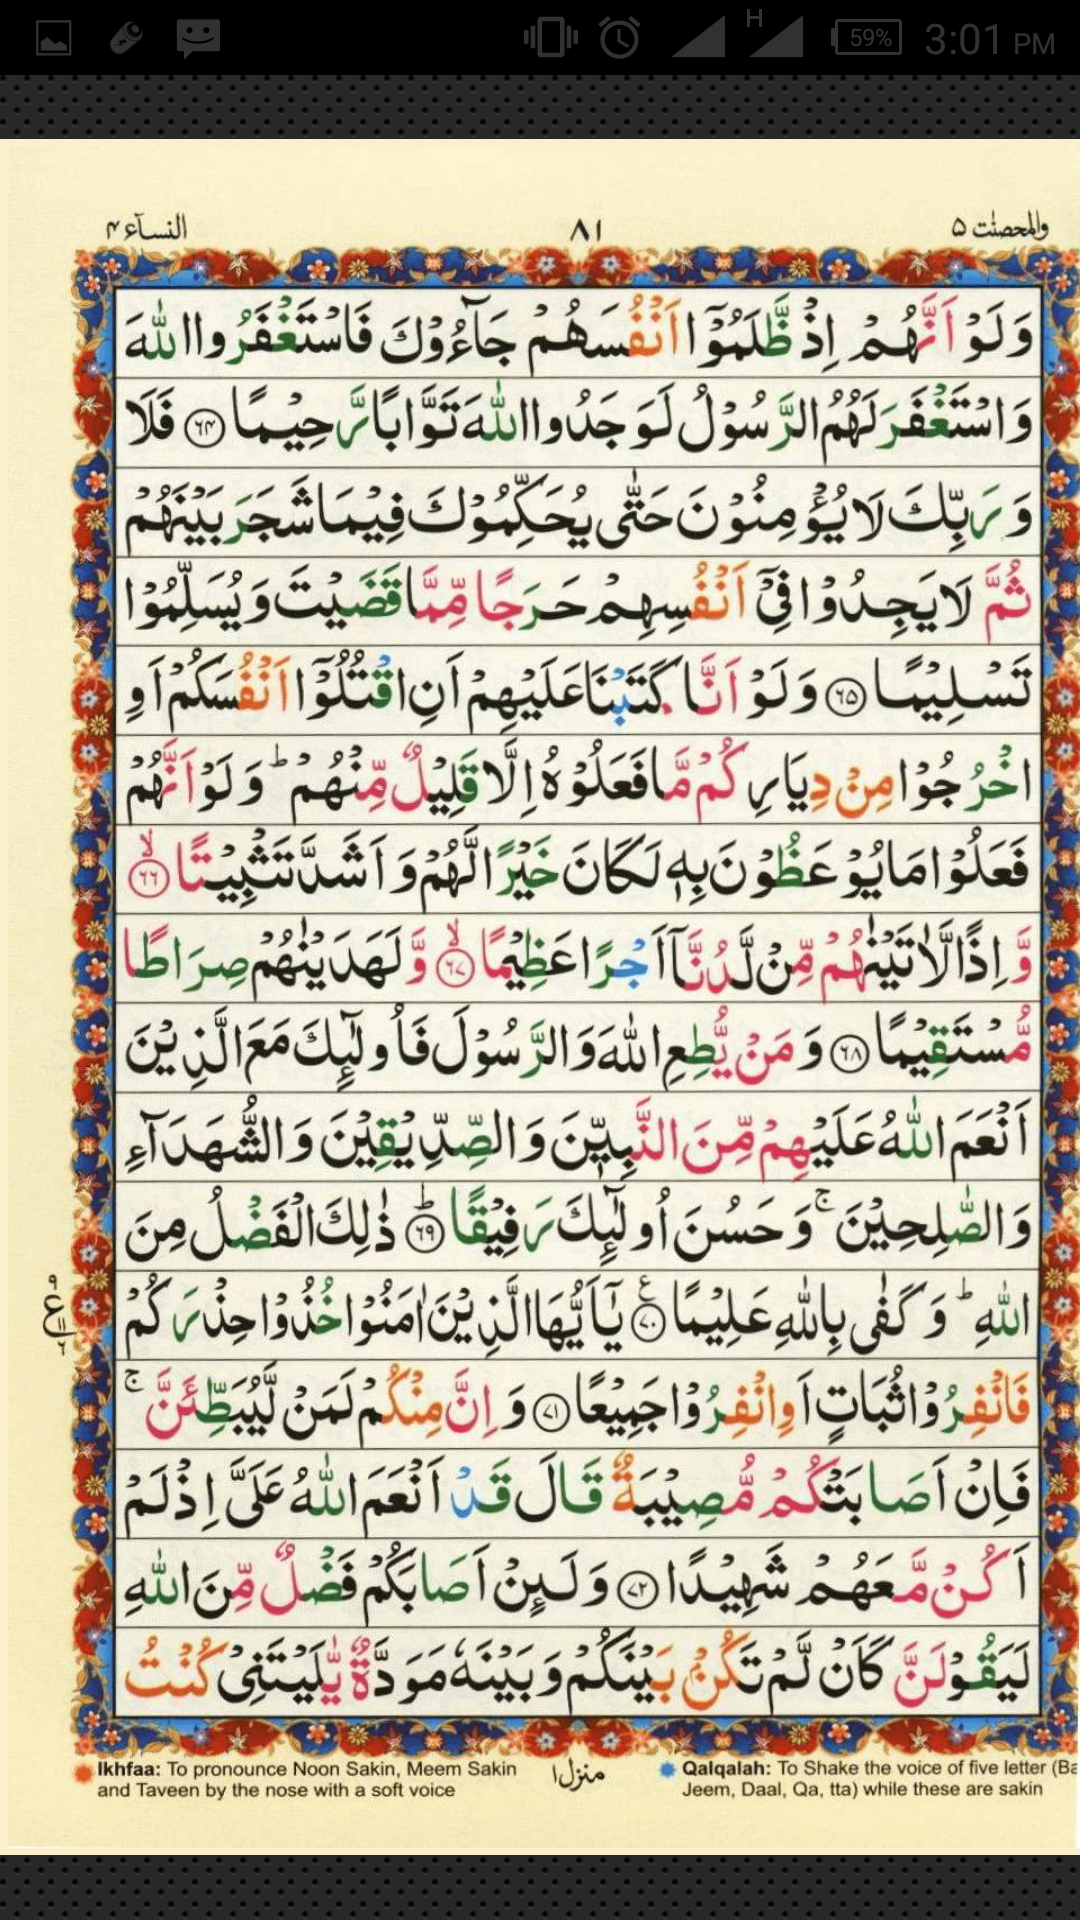 H 59% 3:01 PM
والمحصنٰت ۵ ۸۱ النسآء ۴
وَلَوْ اَنَّهُمْ اِذْ ظَّلَمُوْۤا اَنْفُسَهُمْ جَآءُوْكَ فَاسْتَغْفَرُوا اللّٰهَ
وَاسْتَغْفَرَ لَهُمُ الرَّسُوْلُ لَوَجَدُوا اللّٰهَ تَوَّابًا رَّحِيْمًا ۶۴ فَلَا
وَرَبِّكَ لَا يُؤْمِنُوْنَ حَتّٰى يُحَكِّمُوْكَ فِيْمَا شَجَرَ بَيْنَهُمْ
ثُمَّ لَا يَجِدُوْا فِيْۤ اَنْفُسِهِمْ حَرَجًا مِّمَّا قَضَيْتَ وَيُسَلِّمُوْا
تَسْلِيْمًا ۶۵ وَلَوْ اَنَّا كَتَبْنَا عَلَيْهِمْ اَنِ اقْتُلُوْۤا اَنْفُسَكُمْ اَوِ
اخْرُجُوْا مِنْ دِيَارِكُمْ مَّا فَعَلُوْهُ اِلَّا قَلِيْلٌ مِّنْهُمْ ؕ وَلَوْ اَنَّهُمْ
فَعَلُوْا مَا يُوْعَظُوْنَ بِهٖ لَكَانَ خَيْرًا لَّهُمْ وَاَشَدَّ تَثْبِيْتًا ۙ ۶۶
وَّاِذًا لَّاٰتَيْنٰهُمْ مِّنْ لَّدُنَّاۤ اَجْرًا عَظِيْمًا ۙ ۶۷ وَّلَهَدَيْنٰهُمْ صِرَاطًا
مُّسْتَقِيْمًا ۶۸ وَمَنْ يُّطِعِ اللّٰهَ وَالرَّسُوْلَ فَاُولٰٓئِكَ مَعَ الَّذِيْنَ
اَنْعَمَ اللّٰهُ عَلَيْهِمْ مِّنَ النَّبِيّٖنَ وَالصِّدِّيْقِيْنَ وَالشُّهَدَآءِ
وَالصّٰلِحِيْنَ ۚ وَحَسُنَ اُولٰٓئِكَ رَفِيْقًا ؕ ۶۹ ذٰلِكَ الْفَضْلُ مِنَ
اللّٰهِ ؕ وَكَفٰى بِاللّٰهِ عَلِيْمًا ۷۰ ع يٰۤاَيُّهَا الَّذِيْنَ اٰمَنُوْا خُذُوْا حِذْرَكُمْ
فَانْفِرُوْا ثُبَاتٍ اَوِانْفِرُوْا جَمِيْعًا ۷۱ وَاِنَّ مِنْكُمْ لَمَنْ لَّيُبَطِّئَنَّ ۚ
فَاِنْ اَصَابَتْكُمْ مُّصِيْبَةٌ قَالَ قَدْ اَنْعَمَ اللّٰهُ عَلَيَّ اِذْ لَمْ
اَكُنْ مَّعَهُمْ شَهِيْدًا ۷۲ وَلَئِنْ اَصَابَكُمْ فَضْلٌ مِّنَ اللّٰهِ
لَيَقُوْلَنَّ كَاَنْ لَّمْ تَكُنْۢ بَيْنَكُمْ وَبَيْنَهٗ مَوَدَّةٌ يّٰلَيْتَنِيْ كُنْتُ
۹ ع ۱۱ ۶
Ikhfaa: To pronounce Noon Sakin, Meem Sakin
and Taveen by the nose with a soft voice
منزل ۱
Qalqalah: To Shake the voice of five letter (Ba
Jeem, Daal, Qa, tta) while these are sakin